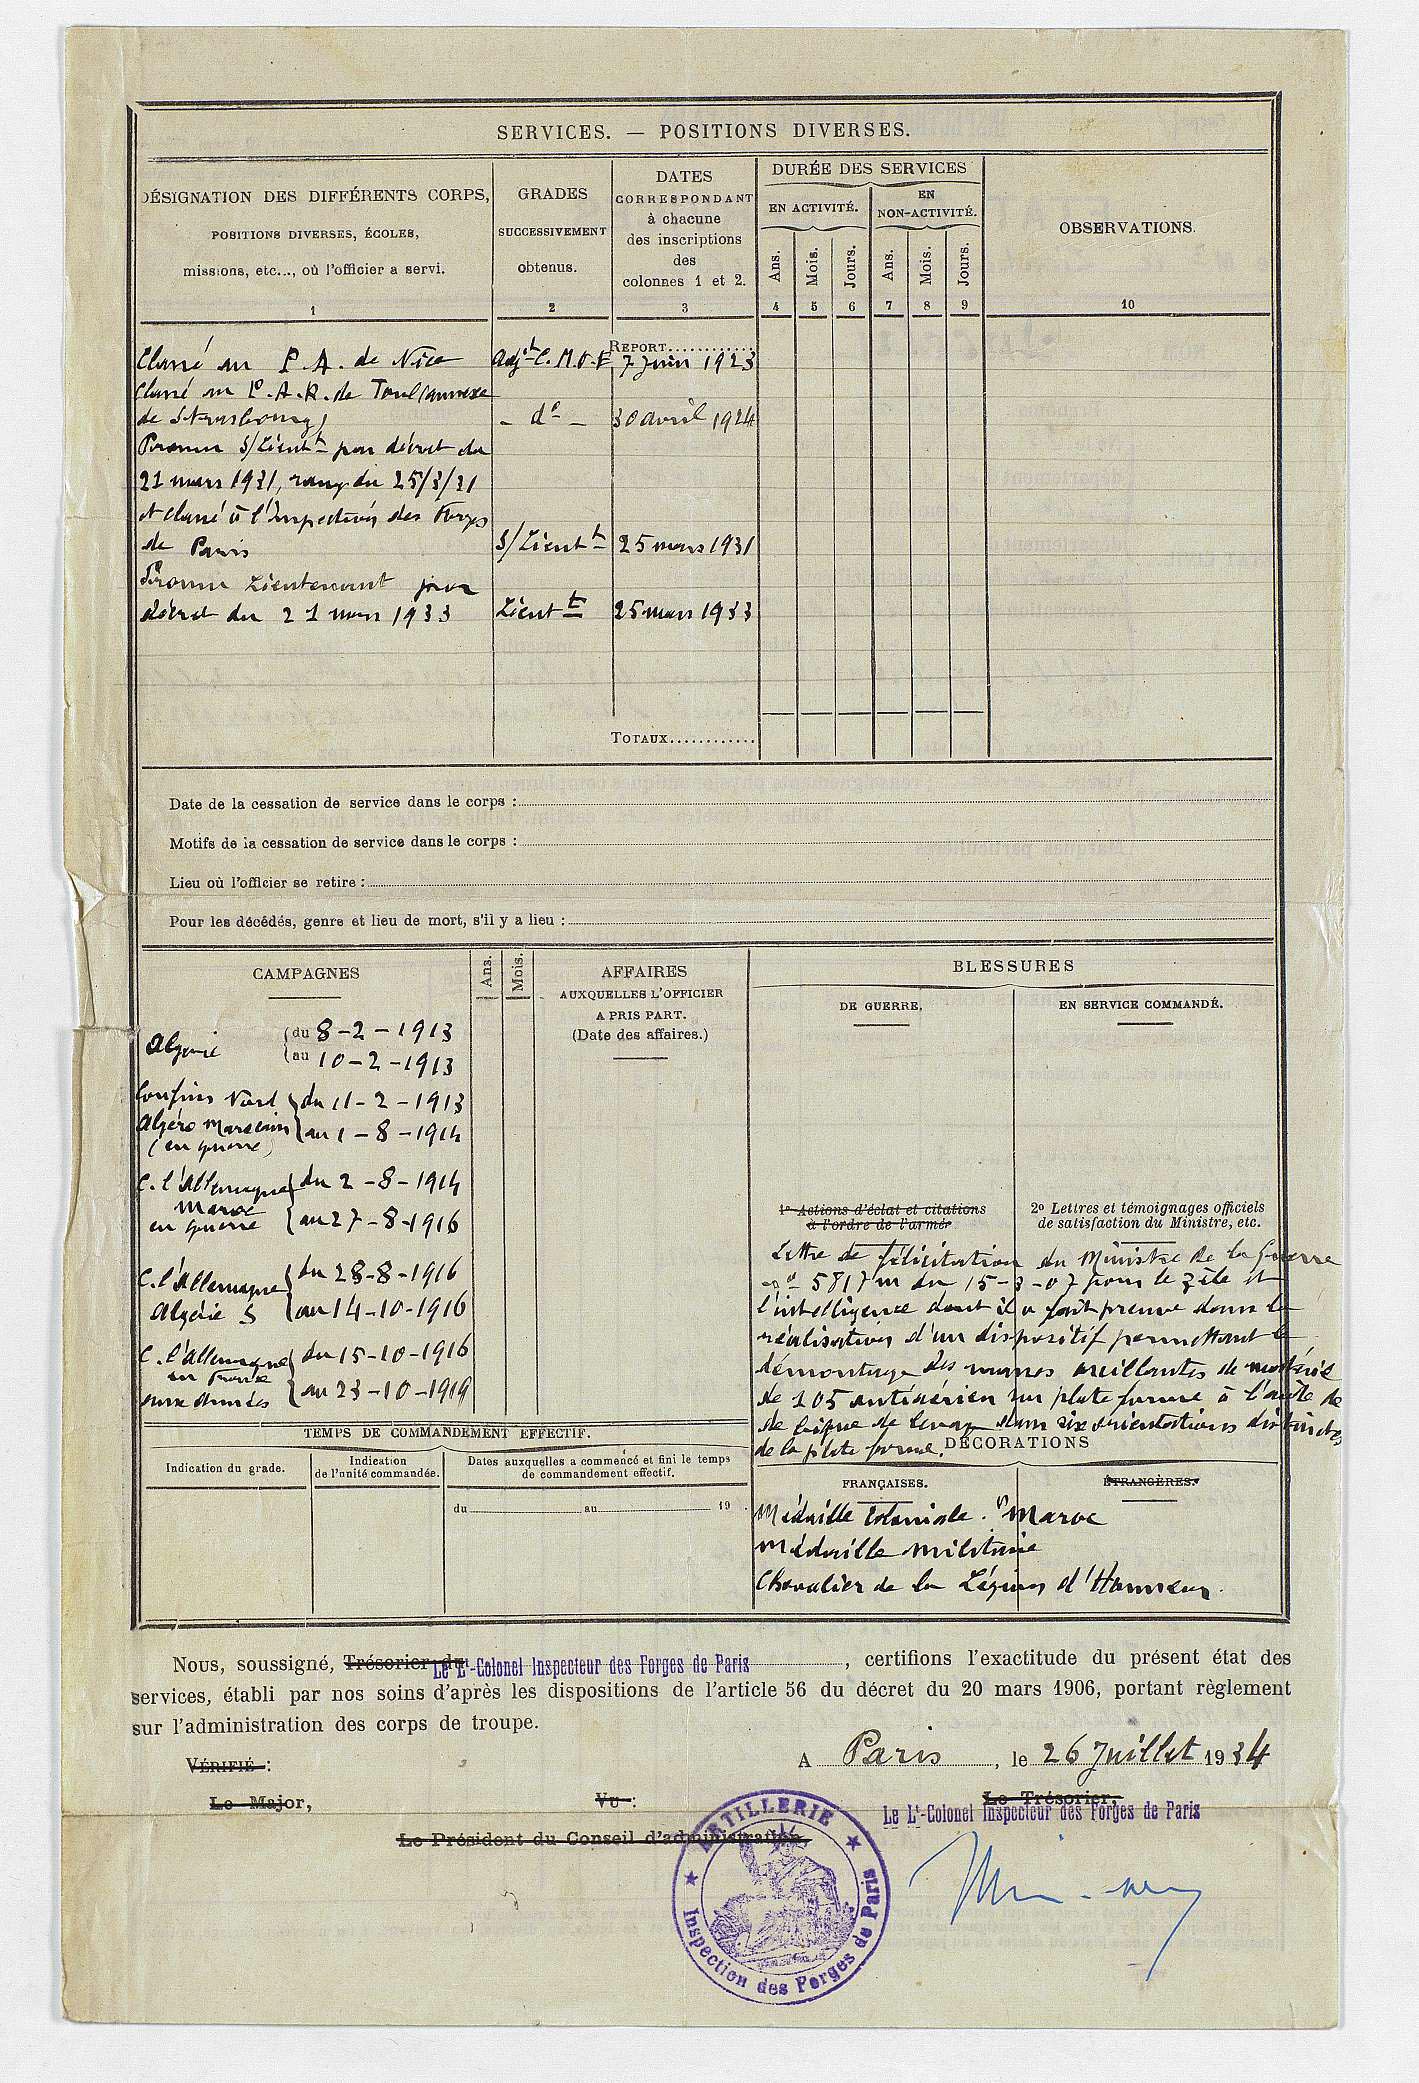 SERVICES. — POSITIONS DIVERSES.
DÉSIGNATION DES DIFFÉRENTS CORPS,
POSITIONS DIVERSES, ÉCOLES,
missions, etc..., où l'officier a servi.
1
GRADES
SUCCESSIVEMENT
obtenus.
2
DATES
CORRESPONDANT
à chacune
des inscriptions
des
colonnes 1 et 2.
3
DURÉE DES SERVICES
EN ACTIVITÉ.
EN
NON-ACTIVITÉ.
Ans. Mois. Jours. Ans. Mois. Jours.
4 5 6 7 8 9
OBSERVATIONS.
10
REPORT............
Classé au P. A. de Nice Adjt C. M. O. E 7 Juin 1923
Classé au P. A. R. de Toul (annexe
de Strasbourg) - do - 30 avril 1924
Promu S/Lieutt par décret du
21 mars 1931, rang du 25/3/31
et classé à l'Inspection des Forges
de Paris S/Lieutt 25 mars 1931
Promu Lieutenant par
décret du 21 mars 1933 Lieutt 25 mars 1933
TOTAUX............
Date de la cessation de service dans le corps :
Motifs de la cessation de service dans le corps :
Lieu où l'officier se retire :
Pour les décédés, genre et lieu de mort, s'il y a lieu :
CAMPAGNES
Ans. Mois.
Algérie du 8-2-1913
au 10-2-1913
Confins Nord du 11-2-1913
Algéro Marocain au 1-8-1914
(en guerre)
C. l'Allemagne du 2-8-1914
Maroc
en guerre au 27-8-1916
C. l'Allemagne du 28-8-1916
Algérie S au 14-10-1916
C. l'Allemagne du 15-10-1916
en France
aux armées au 23-10-1919
AFFAIRES
AUXQUELLES L'OFFICIER
A PRIS PART.
(Date des affaires.)
BLESSURES
DE GUERRE.
EN SERVICE COMMANDÉ.
1o Actions d'éclat et citations
à l'ordre de l'armée
2o Lettres et témoignages officiels
de satisfaction du Ministre, etc.
Lettre de félicitation du Ministre de la Guerre
no 5817 m du 15-3-07 pour le zèle et
l'intelligence dont il a fait preuve dans la
réalisation d'un dispositif permettant le
démontage des masses oscillantes de matériel
de 105 antiaérien sur plate forme à l'aide de
de ligne de levage dans six orientations distinctes
de la plate forme.
TEMPS DE COMMANDEMENT EFFECTIF.
Indication du grade.
Indication
de l'unité commandée.
Dates auxquelles a commencé et fini le temps
de commandement effectif.
du au 19
DÉCORATIONS
FRANÇAISES.
ÉTRANGÈRES.
Médaille Coloniale. "Maroc
Médaille militaire
Chevalier de la Légion d'Honneur.
Nous, soussigné, Trésorier du Le Lt-Colonel Inspecteur des Forges de Paris, certifions l'exactitude du présent état des
services, établi par nos soins d'après les dispositions de l'article 56 du décret du 20 mars 1906, portant règlement
sur l'administration des corps de troupe.
A Paris, le 26 Juillet 1934
VÉRIFIÉ :
Le Major,
Vu :
Le Président du Conseil d'administration,
Le Trésorier,
Le Lt-Colonel Inspecteur des Forges de Paris
ARTILLERIE
Inspection des Forges de Paris